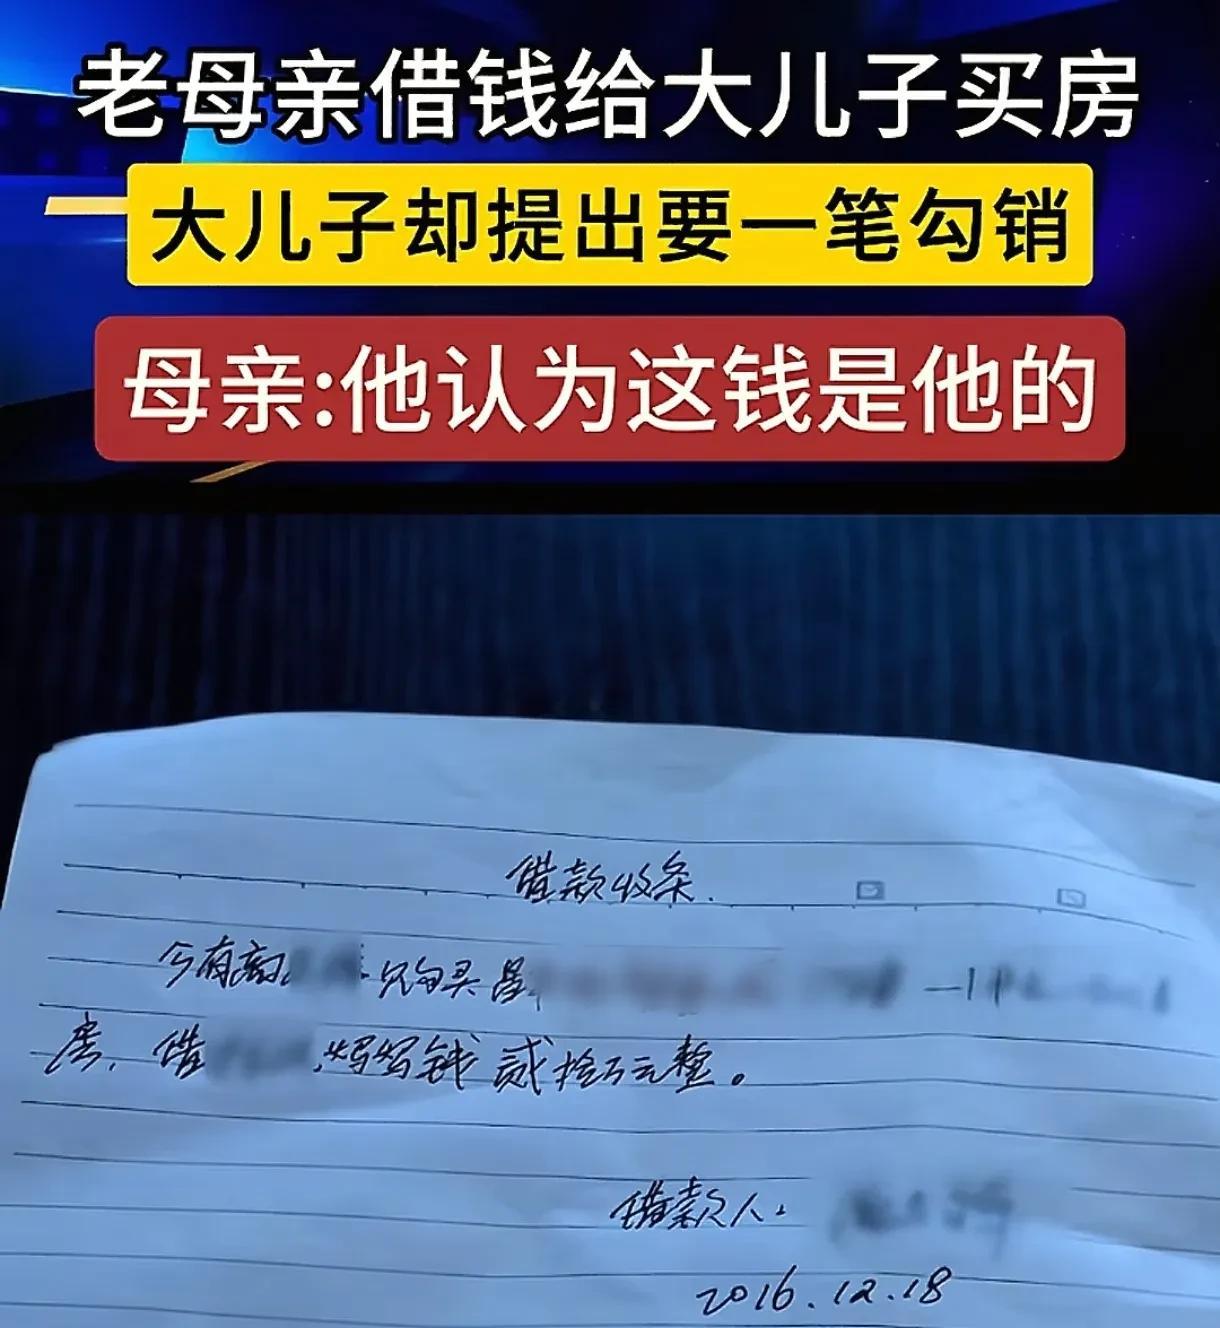 老母亲借钱给大儿子买房
大儿子却提出要一笔勾销
母亲:他认为这钱是他的
借款收条.
今有高 购买昌 一
房，借 妈妈钱贰拾万元整。
借款人:
2016.12.18